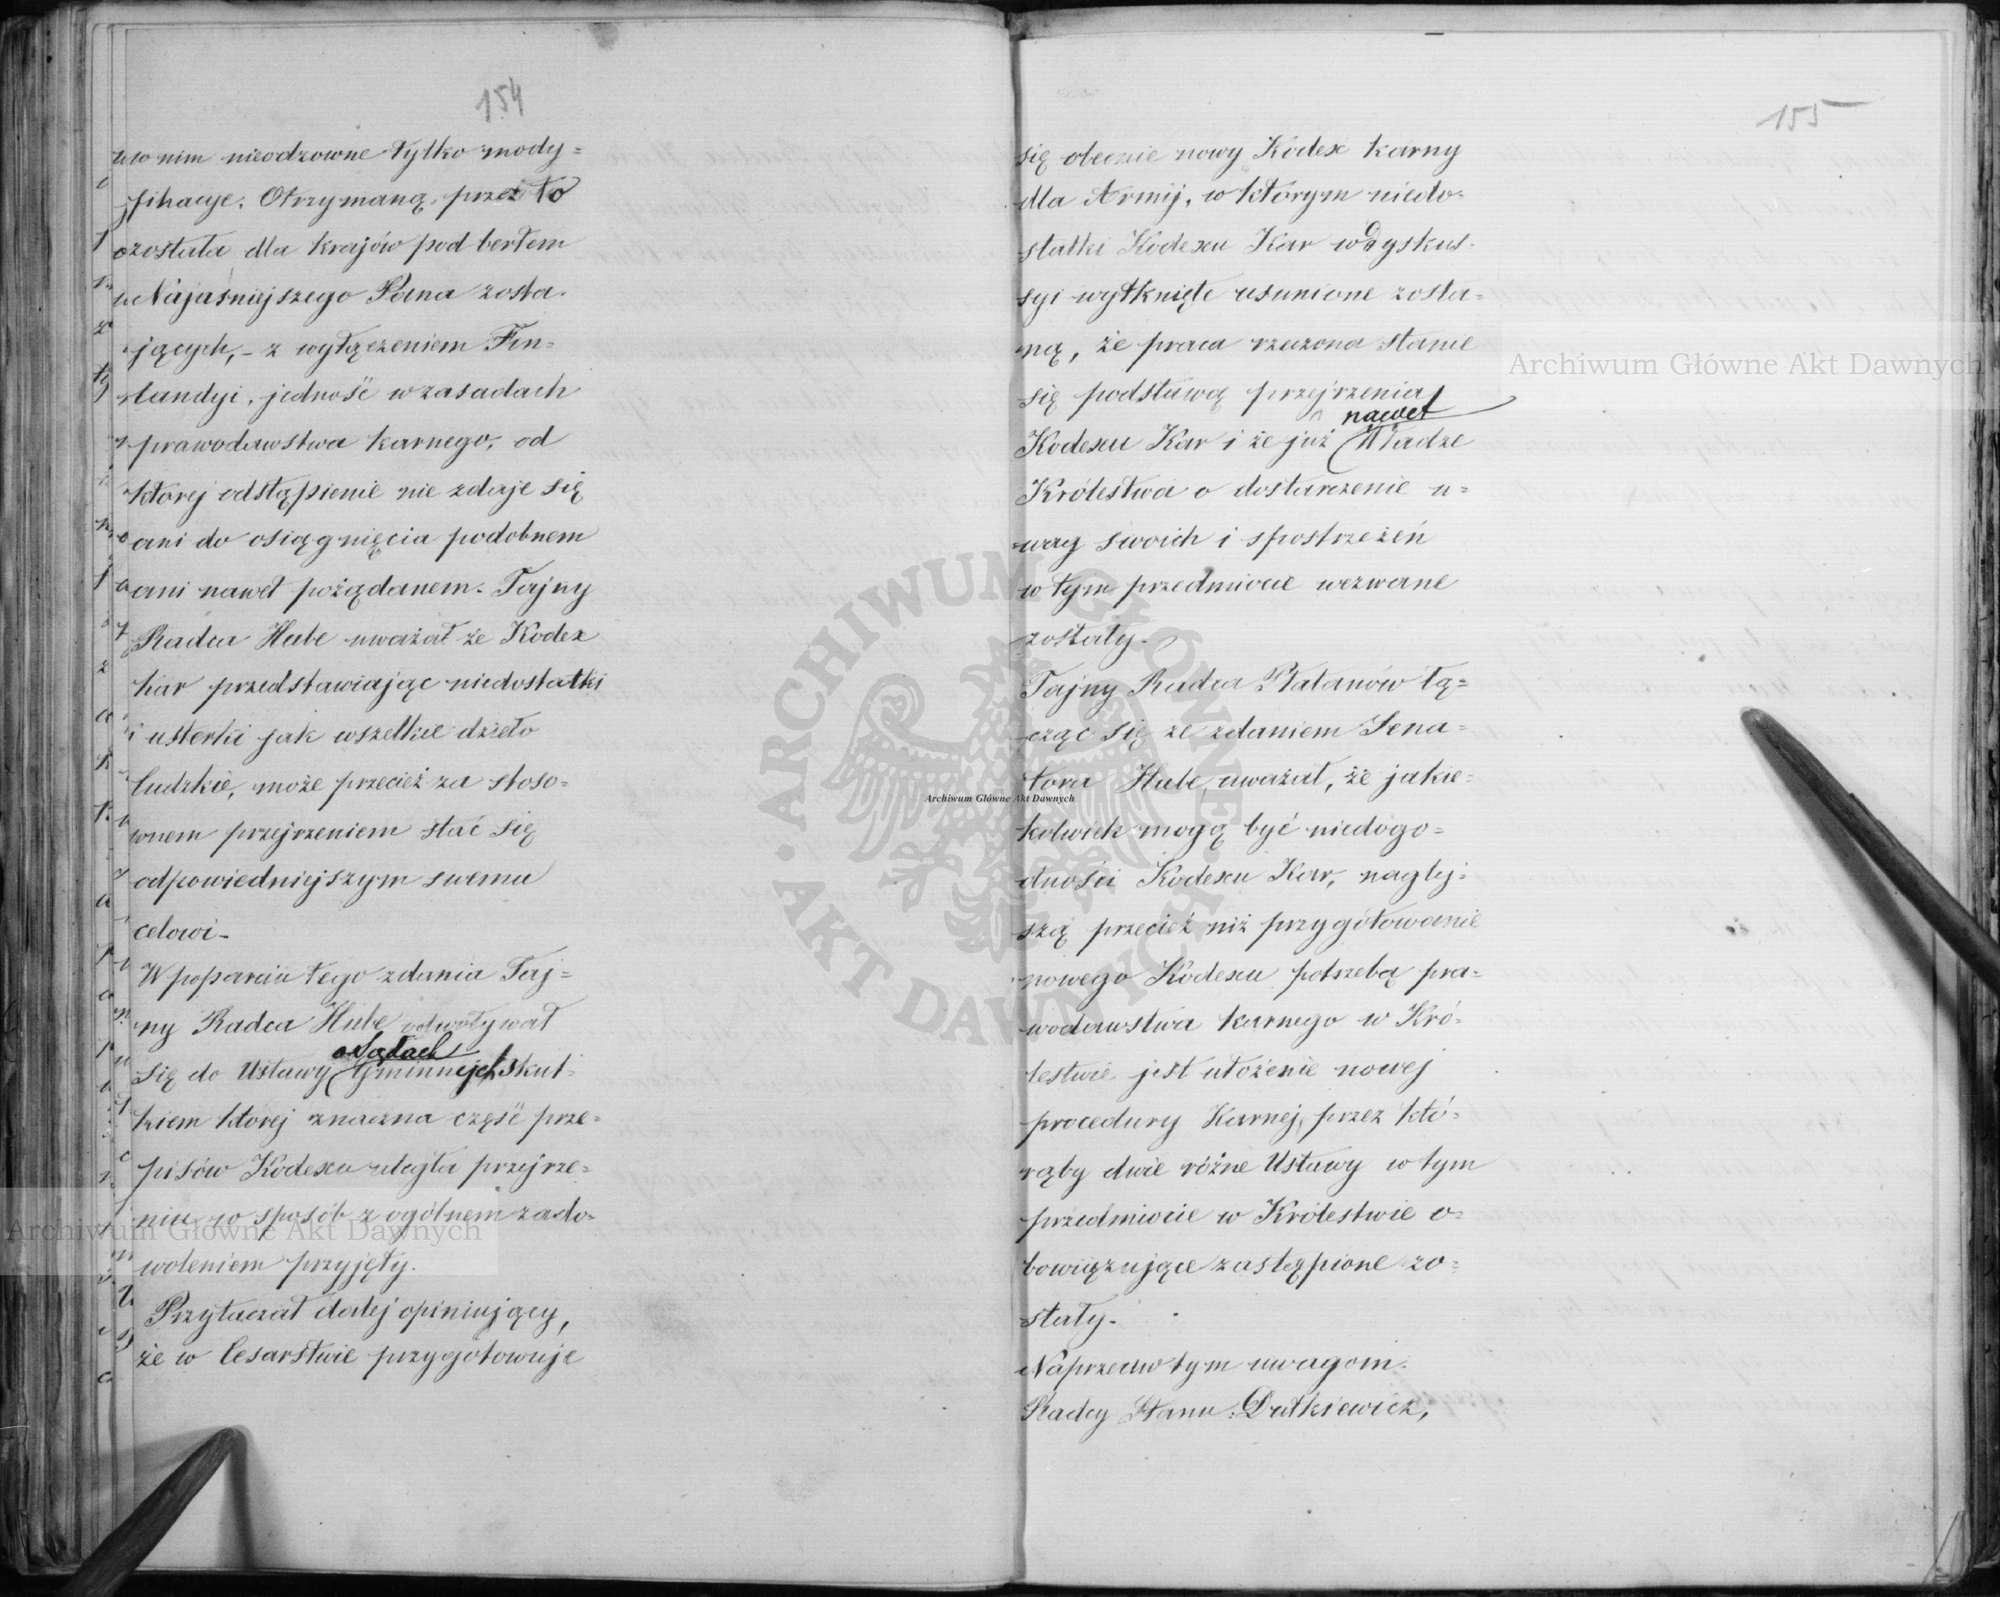 154
w nim nieodzowne tylko mody=
fikacye. Otrzymaną przez to
została dla krajów pod berłem
Najaśniejszego Pana zosta=
jących, - z wyłączeniem Fin=
landyi, jedność w zasadach
prawodawstwa karnego, od
której odstąpienie nie zdaje się
ani do osiągnięcia podobnem
ani nawet pożądanem. Tajny
Radca Hube uważał że Kodex
kar przedstawiając niedostatki
i usterki jak wszelkie dzieło
ludzkie, może przecież za stoso=
wnem przejrzeniem stać się
odpowiedniejszym swemu
celowi -
W poparciu tego zdania Taj=
ny Radca Hube odwoływał
o Sądach
się do Ustawy Gminnych skut=
kiem której znaczna część prze=
pisów Kodexu uległa przejrze=
niu w sposób z ogólnem zado=
woleniem przyjęty.
Przytaczał dalej opiniujący,
że w Cesarstwie przygotowuje
155
się obecnie nowy Kodex karny
dla Armij, w którym niedo=
statki Kodexu Kar w dyskus=
syi wytknięte usunione zosta=
ną, że praca rzeczona stanie
się podstawą przejrzenia
nawet
Kodexu Kar i że już Władze
Królestwa o dostarczenie u=
wag swoich i spostrzeżeń
w tym przedmiocie wezwane
zostały.
Tajny Radca Płatanów łą=
cząc się ze zdaniem Sena=
tora Hube, uważał, że jakie=
kolwiek mogą być niedogo=
dności Kodexu Kar, naglej=
szą przecież niż przygotowanie
nowego Kodexu potrzebą pra=
wodawstwa karnego w Kró=
lestwie jest ułożenie nowej
procedury Karnej, przez któ=
rąby dwie różne Ustawy w tym
przedmiocie w Królestwie o=
bowiązujące zastąpione zo=
stały.
Naprzeciw tym uwagom
Radcy Stanu: Dutkiewicz,
Archiwum Główne Akt Dawnych
Archiwum Główne Akt Dawnych
Archiwum Główne Akt Dawnych
ARCHIWUM GŁÓWNE · AKT DAWNYCH ·